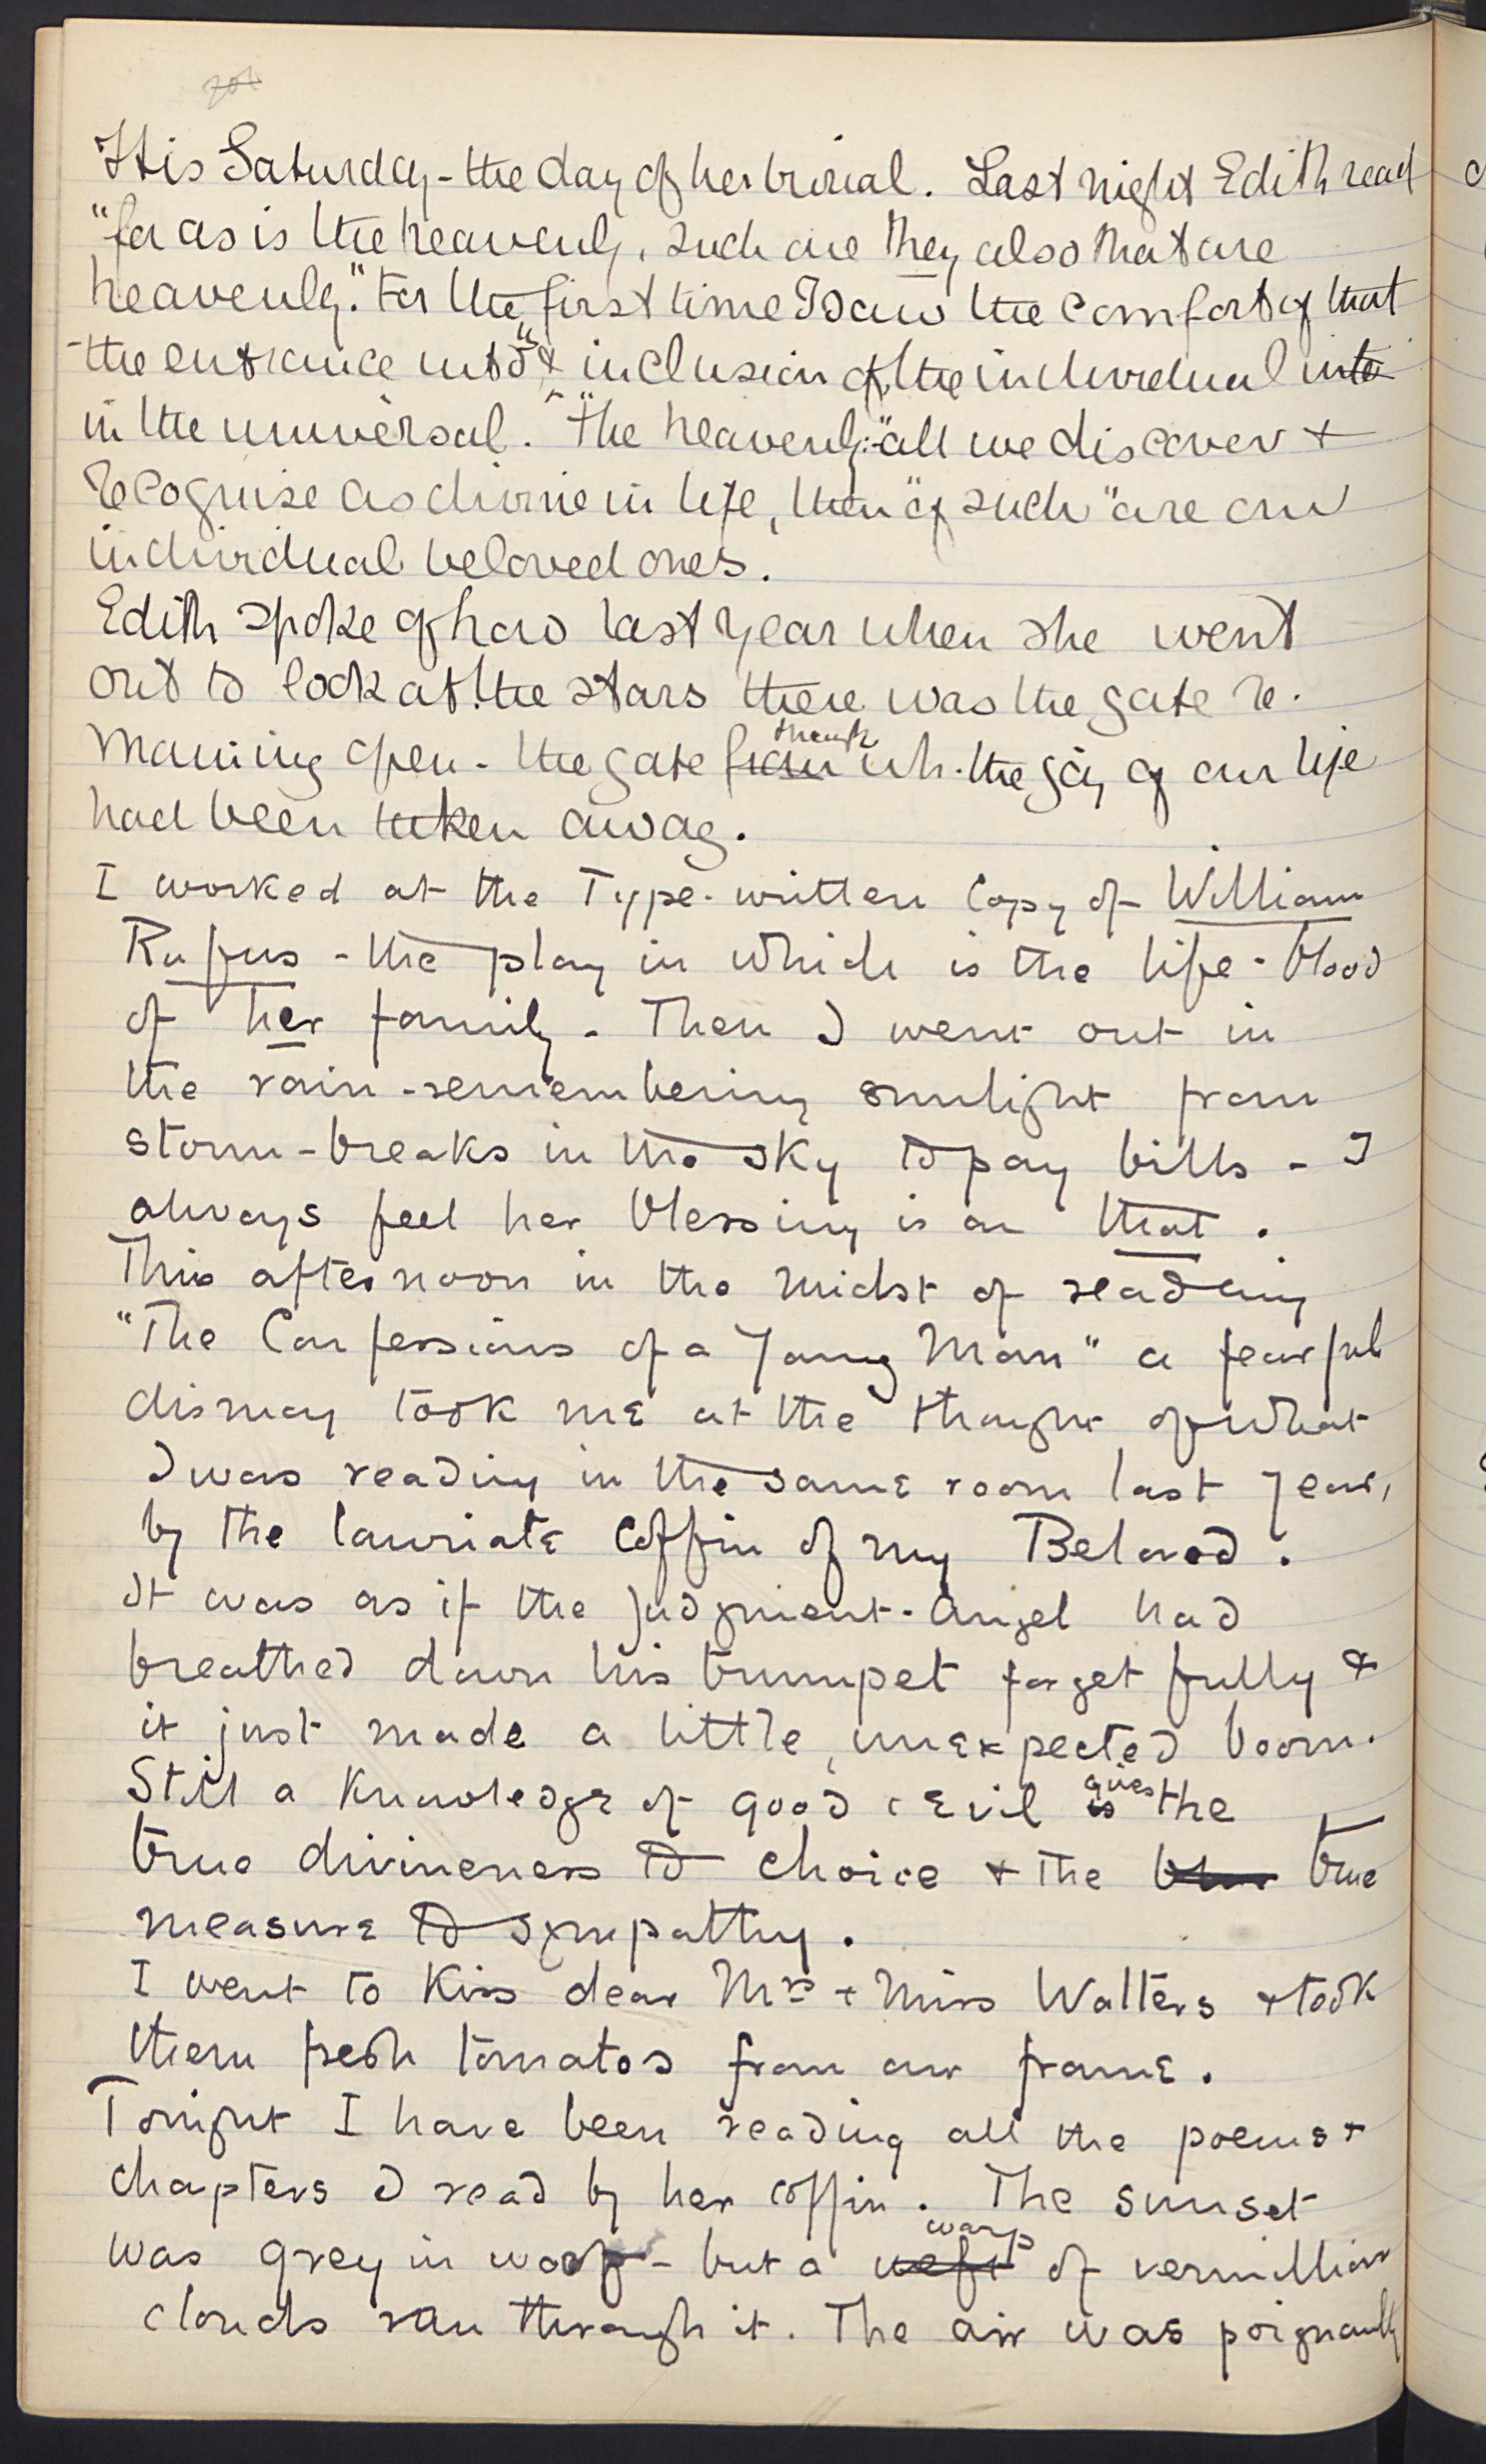 It is Saturday - the day of her burial. Last night Edith read
"for as is the heavenly, such are they also that are
heavenly." For the first time I saw the comfort of that
- the entrance into " & inclusion of the individual into
in the universal. "The heavenly": all we discover +
recognise as divine in life, then "of such" are our
individual beloved ones.
Edith spoke of how last year when she went
out to look at the stars there was the gate re-
maining open - the gate from through wh. the joy of our life
had been taken away.
I worked at the Type-written Copy of William
Rufus - the play in which is the life-blood
of her family. Then I went out in
the rain-remembering sunlight from
storm-breaks in the sky to pay bills - I
always feel her blessing is on that.
This afternoon in the midst of reading
"The Confessions of a Young Man" a fearful
dismay took me at the thought of what
I was reading in the same room last year,
by the lauriate Coffin of my Beloved.
It was as if the Judgment-Angel had
breathed down his trumpet forgetfully &
it just made a little, unexpected boom.
Still a Knowledge of good & Evil is gives the
true divineness to choice & the true
measure to sympathy.
I went to Kiss dear Mrs + Miss Walters & took
them fresh tomatos from our frame.
Tonight I have been reading all the poems &
chapters I read by her coffin. The sunset
was grey in woof - but a weft warp of vermillion
clouds ran through it. The air was poignantly